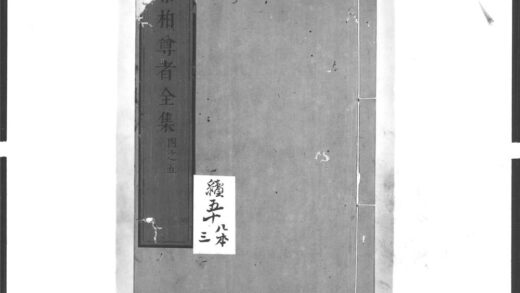 柏尊者全集 四之五
續五十
八本
三